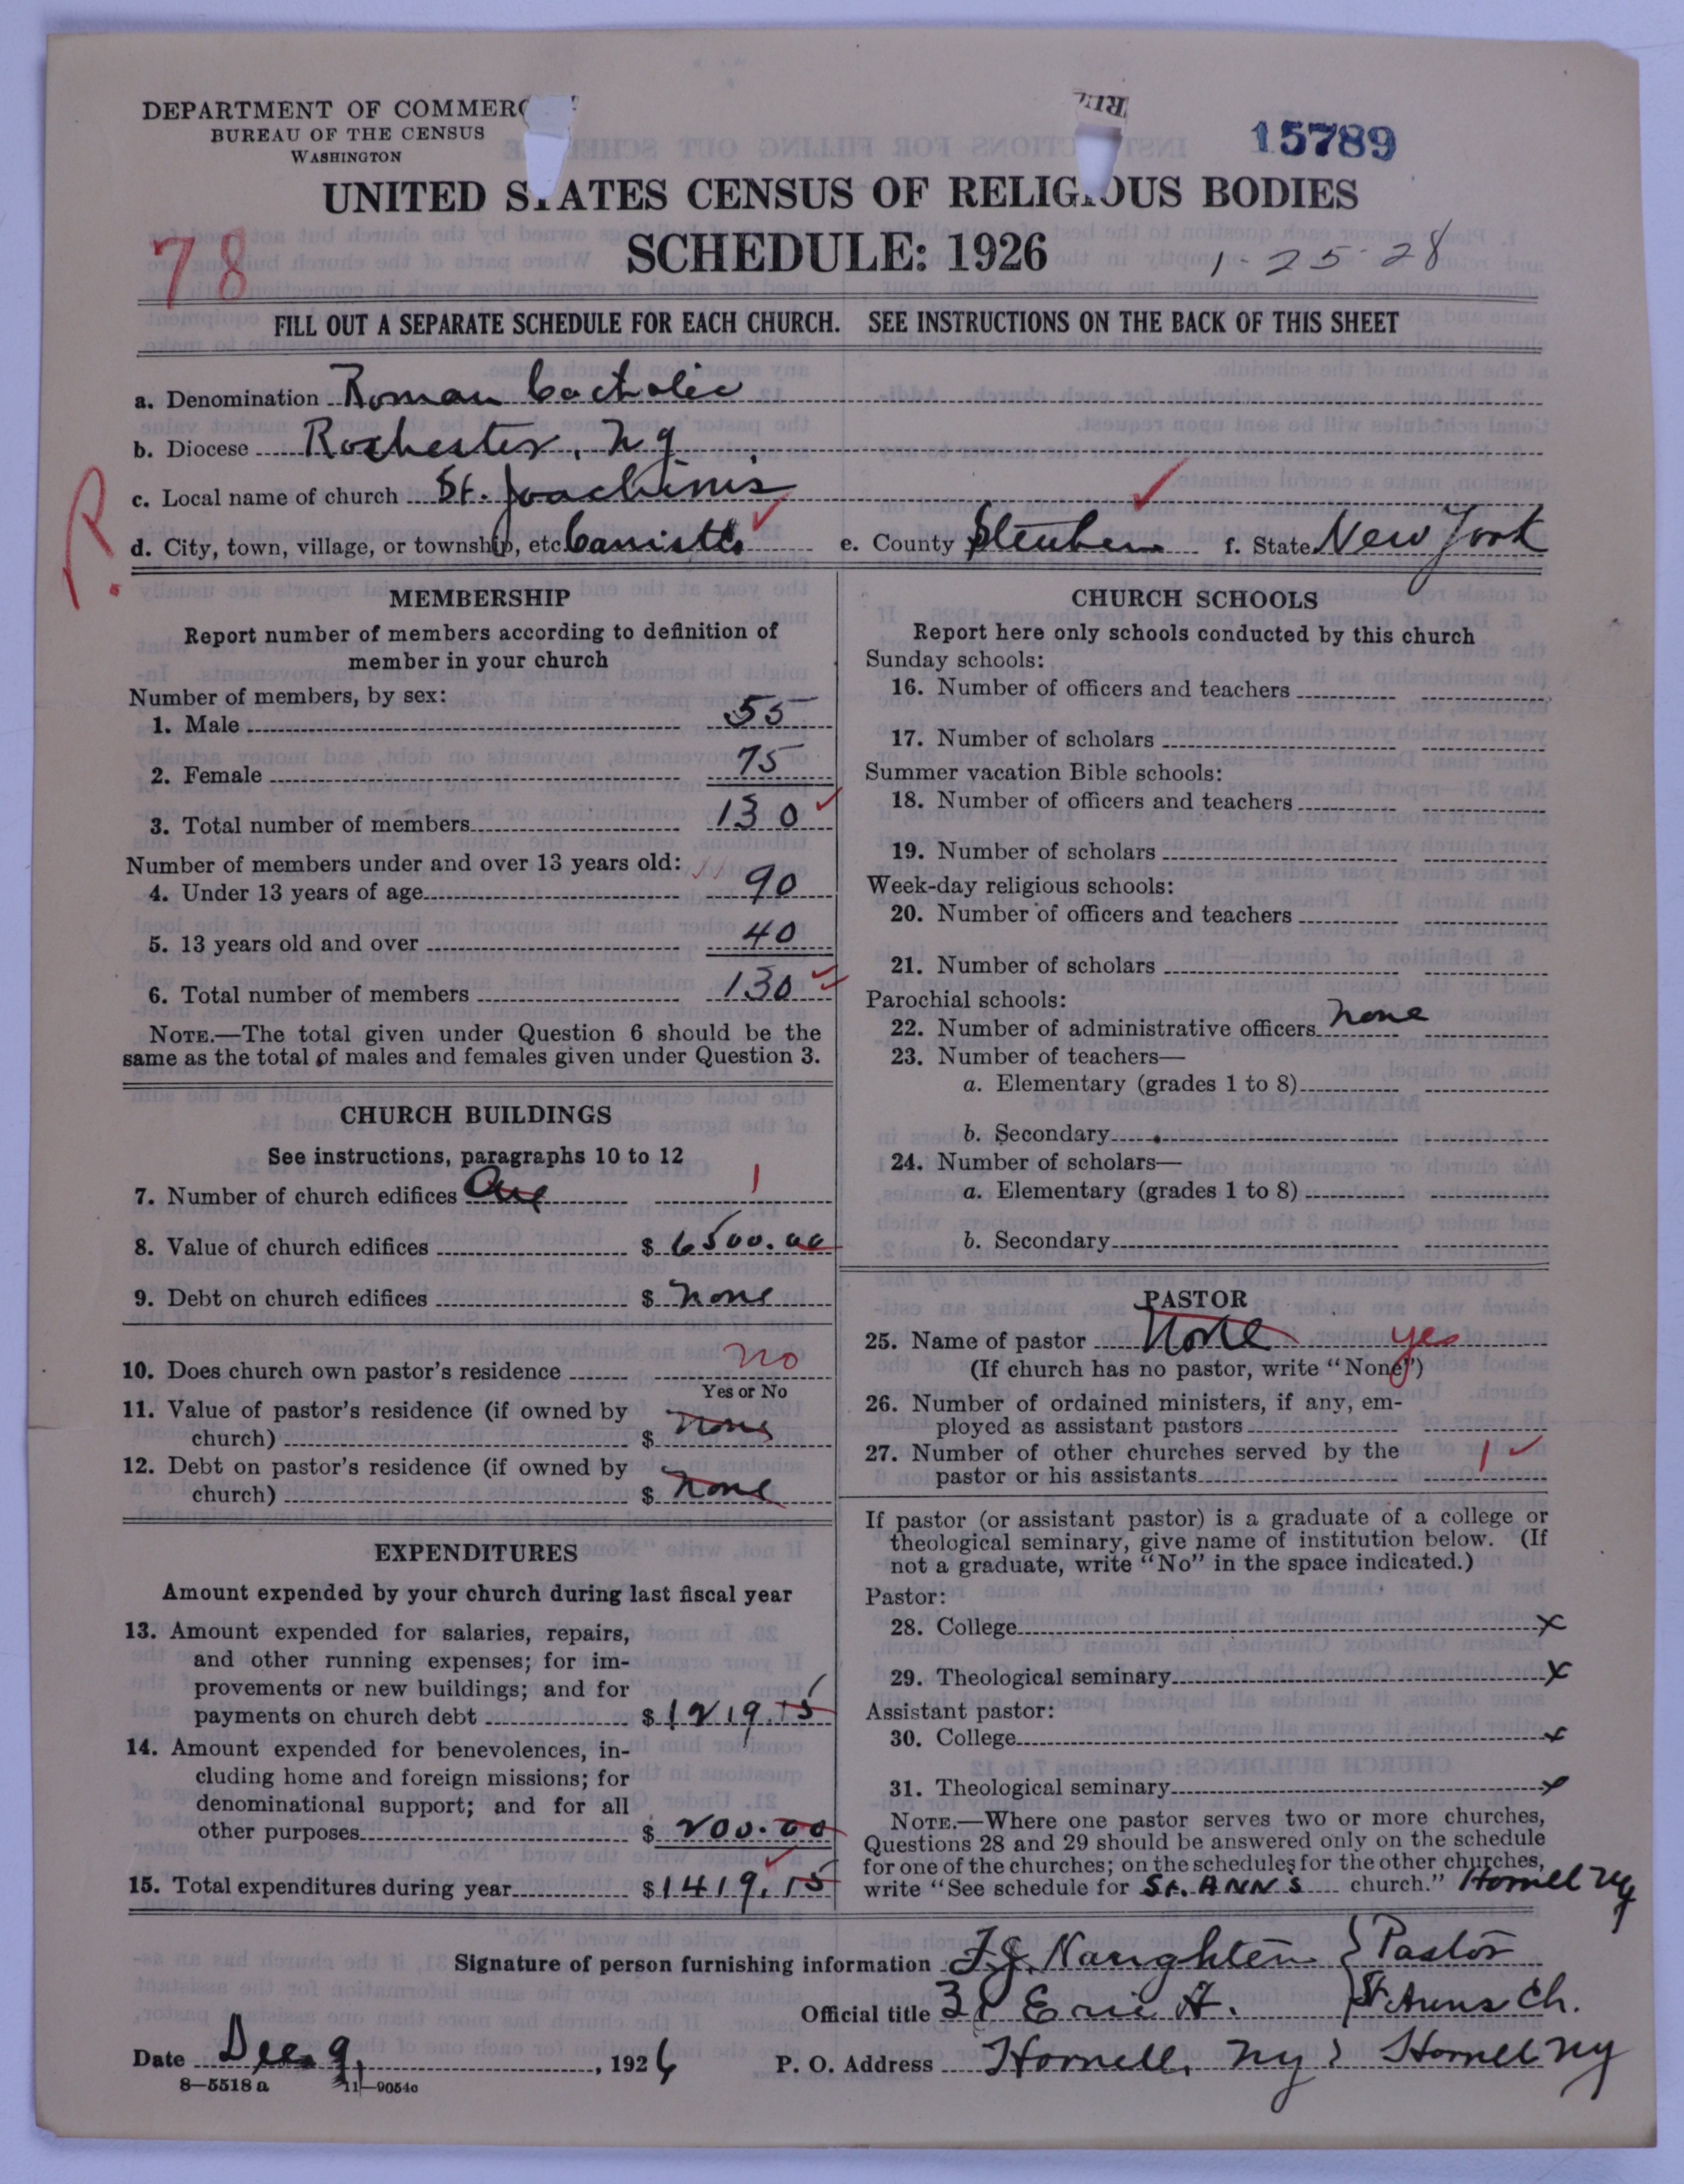 DEPARTMENT OF COMMERC
BUREAU OF THE CENSUS
WASHINGTON
15789
UNITED STATES CENSUS OF RELIGIOUS BODIES
78
SCHEDULE: 1926
1-25-28
FILL OUT A SEPARATE SCHEDULE FOR EACH CHURCH. SEE INSTRUCTIONS ON THE BACK OF THIS SHEET
a. Denomination Roman Catholic
b. Diocese Rochester, N.Y.
R.
c. Local name of church St. Joachim's
d. City, town, village, or township, etc. Canisteo e. County Steuben f. State New York
MEMBERSHIP
Report number of members according to definition of
member in your church
Number of members, by sex:
1. Male 55
2. Female 75
3. Total number of members 130
Number of members under and over 13 years old:
4. Under 13 years of age 90
5. 13 years old and over 40
6. Total number of members 130
NOTE.—The total given under Question 6 should be the
same as the total of males and females given under Question 3.
CHURCH BUILDINGS
See instructions, paragraphs 10 to 12
7. Number of church edifices One 1
8. Value of church edifices $ 6500.00
9. Debt on church edifices $ none
10. Does church own pastor's residence no
Yes or No
11. Value of pastor's residence (if owned by
church) $ none
12. Debt on pastor's residence (if owned by
church) $ none
EXPENDITURES
Amount expended by your church during last fiscal year
13. Amount expended for salaries, repairs,
and other running expenses; for im-
provements or new buildings; and for
payments on church debt $ 1219.15
14. Amount expended for benevolences, in-
cluding home and foreign missions; for
denominational support; and for all
other purposes $ 200.00
15. Total expenditures during year $ 1419.15
CHURCH SCHOOLS
Report here only schools conducted by this church
Sunday schools:
16. Number of officers and teachers
17. Number of scholars
Summer vacation Bible schools:
18. Number of officers and teachers
19. Number of scholars
Week-day religious schools:
20. Number of officers and teachers
21. Number of scholars
Parochial schools:
22. Number of administrative officers none
23. Number of teachers—
a. Elementary (grades 1 to 8)
b. Secondary
24. Number of scholars—
a. Elementary (grades 1 to 8)
b. Secondary
PASTOR
25. Name of pastor None yes
(If church has no pastor, write "None")
26. Number of ordained ministers, if any, em-
ployed as assistant pastors
27. Number of other churches served by the
pastor or his assistants 1
If pastor (or assistant pastor) is a graduate of a college or
theological seminary, give name of institution below. (If
not a graduate, write "No" in the space indicated.)
Pastor:
28. College x
29. Theological seminary x
Assistant pastor:
30. College x
31. Theological seminary x
NOTE.—Where one pastor serves two or more churches,
Questions 28 and 29 should be answered only on the schedule
for one of the churches; on the schedules for the other churches,
write "See schedule for St. ANN'S church." Hornell NY
Signature of person furnishing information F.J. Naughten } Pastor
Official title 31 Erie St. St. Anns Ch.
Date Dec. 9, 1926 P. O. Address Hornell, NY Hornell NY
8—5518 a 11—9054c